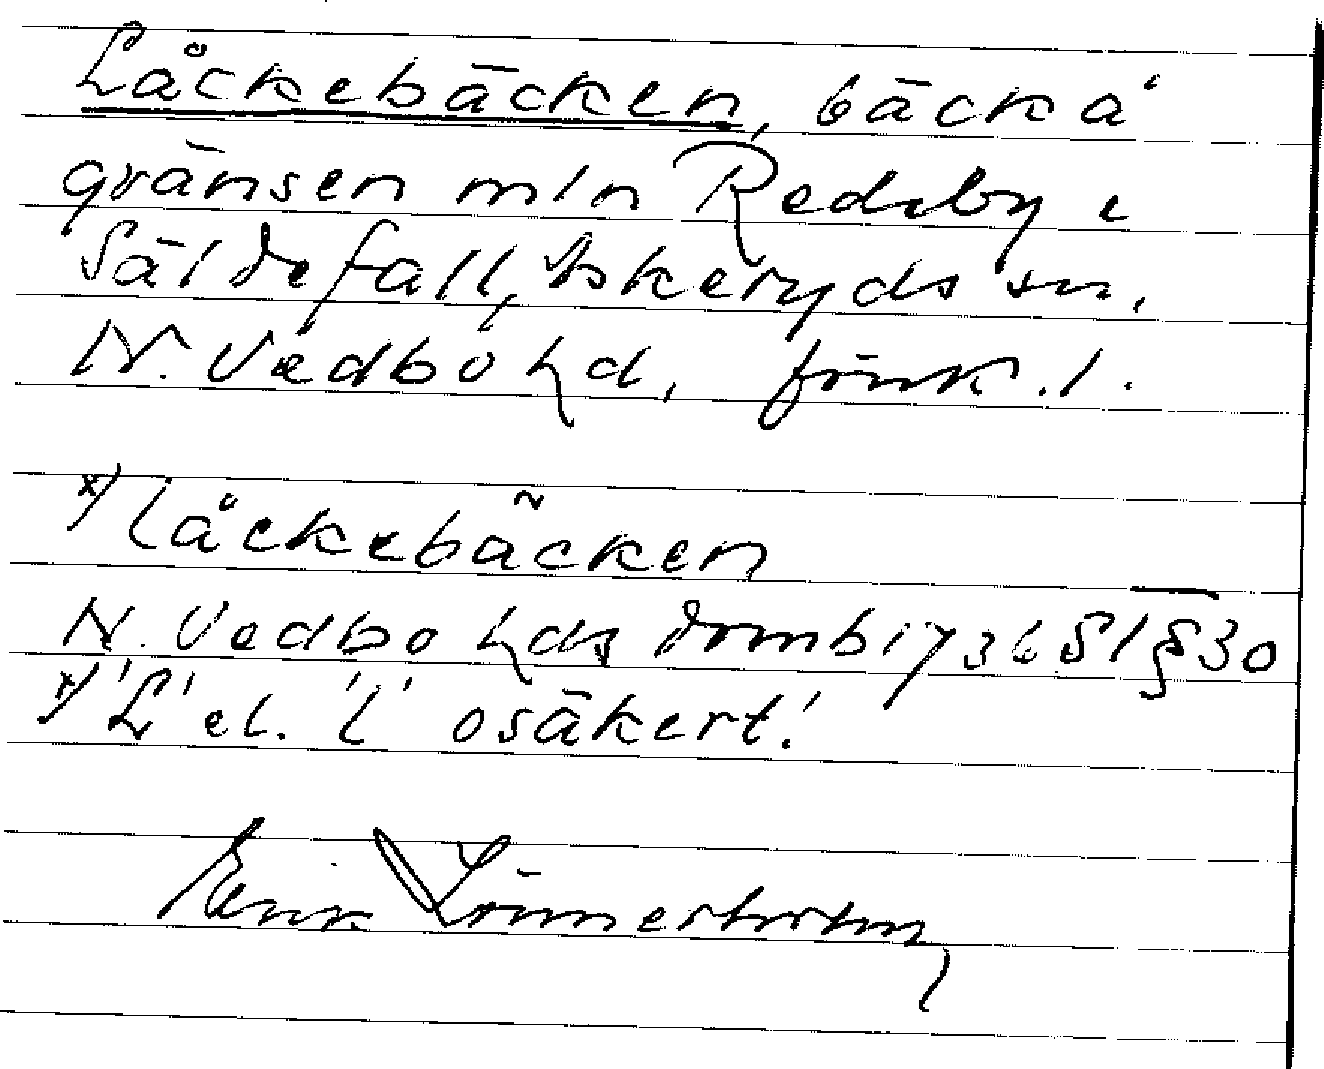 Låckebäcken, bäck å
gränsen mln Redeby i
Säldefall, Askeryds sn,
N. Vedbo hd, Jönk. l.
x) låckebäcken
N. Vedbo hds domb 1736 S 1 § 30
x) 'L' el. 'l' osäkert!
Erik Lönnerholm